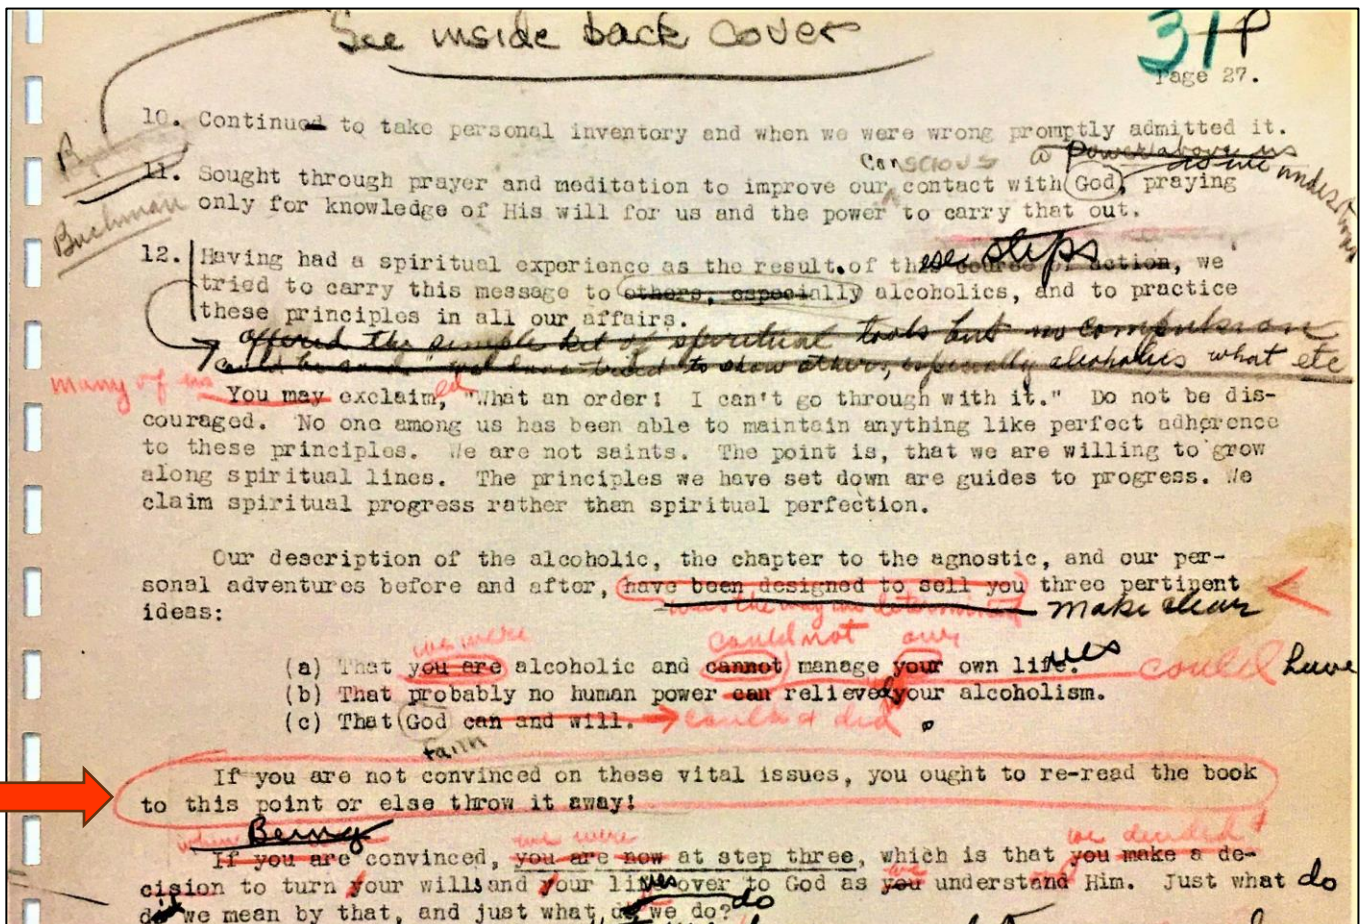 See inside back cover
31
Page 27.
10. Continued to take personal inventory and when we were wrong promptly admitted it.
Conscious a Power above us
as we understood
11. Sought through prayer and meditation to improve our contact with God, praying
Buchman
only for knowledge of His will for us and the power to carry that out.
steps
12. Having had a spiritual experience as the result of the course of action, we
tried to carry this message to others, especially alcoholics, and to practice
these principles in all our affairs.
offered the simple kit of spiritual tools but no compulsion
could be made we have tried to show others, especially alcoholics what etc
many of us
You may exclaim, ed "What an order! I can't go through with it." Do not be dis-
couraged. No one among us has been able to maintain anything like perfect adherence
to these principles. We are not saints. The point is, that we are willing to grow
along spiritual lines. The principles we have set down are guides to progress. We
claim spiritual progress rather than spiritual perfection.
Our description of the alcoholic, the chapter to the agnostic, and our per-
sonal adventures before and after, have been designed to sell you three pertinent
ideas:
make clear
we were could not our
(a) That you are alcoholic and cannot manage your own life. ves could have
(b) That probably no human power can relieved your alcoholism.
(c) That God can and will. could & did
If you are not convinced on these vital issues, you ought to re-read the book
to this point or else throw it away!
Being we were we decided
If you are convinced, you are now at step three, which is that you make a de-
we
cision to turn your wills and your lives over to God as you understand Him. Just what do
do we mean by that, and just what do we do?
do